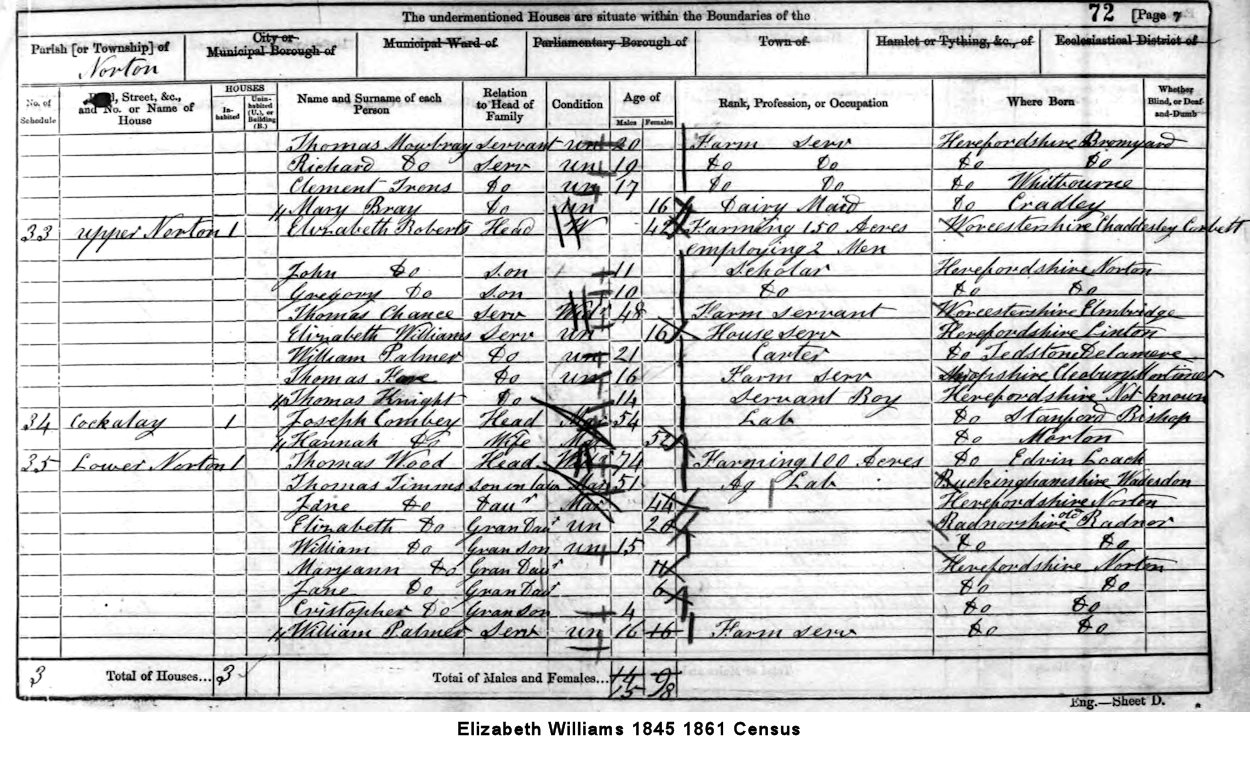 The undermentioned Houses are situate within the Boundaries of the 72 [Page 7
Parish [or Township] of City or Municipal Borough of Municipal Ward of Parliamentary Borough of Town of Hamlet or Tything, &c., of Ecclesiastical District of
Norton
No. of Schedule Street, &c., and No. or Name of House HOUSES Inhabited Uninhabited (U.), or Building (B.) Name and Surname of each Person Relation to Head of Family Condition Age of Males Females Rank, Profession, or Occupation Where Born Whether Blind, or Deaf-and-Dumb
Thomas Mowbray Servant un 20 Farm Serv Herefordshire Bromyard
Richard Do Serv un 19 Do Do Do Do
Clement Irons Do un 17 Do Do Do Whitbourne
Mary Bray Do un 16 Dairy Maid Do Cradley
33 Upper Norton 1 Elizabeth Roberts Head W 42 Farming 150 Acres Worcestershire Chaddesley Corbett
employing 2 Men
John Do Son 11 Scholar Herefordshire Norton
Gregory Do Son 10 Do Do Do
Thomas Chance Serv 48 Farm servant Worcestershire Elmbridge
Elizabeth Williams Serv Un 16 House serv Herefordshire Linton
William Palmer Do un 21 Carter Do Tedstone Delamere
Thomas Do un 16 Farm serv Shropshire Cleobury Mortimer
Thomas Knight Do 14 Servant Boy Herefordshire Not known
34 Cockalay 1 Joseph Combey Head 54 Lab Do Stanford Bishop
Hannah Do Wife 52 Do Morton
35 Lower Norton 1 Thomas Wood Head 74 Farming 100 Acres Do Edvin Loach
Thomas Timms Son in law Mar 51 Ag Lab Buckinghamshire Wadesdon
Jane Do Daur Mar 44 Herefordshire Norton
Elizabeth Do Gran Daur Un 20 Radnorshire old Radnor
William Do Gran son un 15 Do Do
Maryann Do Gran Daur 11 Herefordshire Norton
Jane Do Gran Daur 6 Do Do
Cristopher Do Gran son 4 Do Do
William Palmer Serv un 16 16 Farm serv Do Do
3 Total of Houses... 3 Total of Males and Females... 14 9
15 8
Eng.—Sheet D.
Elizabeth Williams 1845 1861 Census